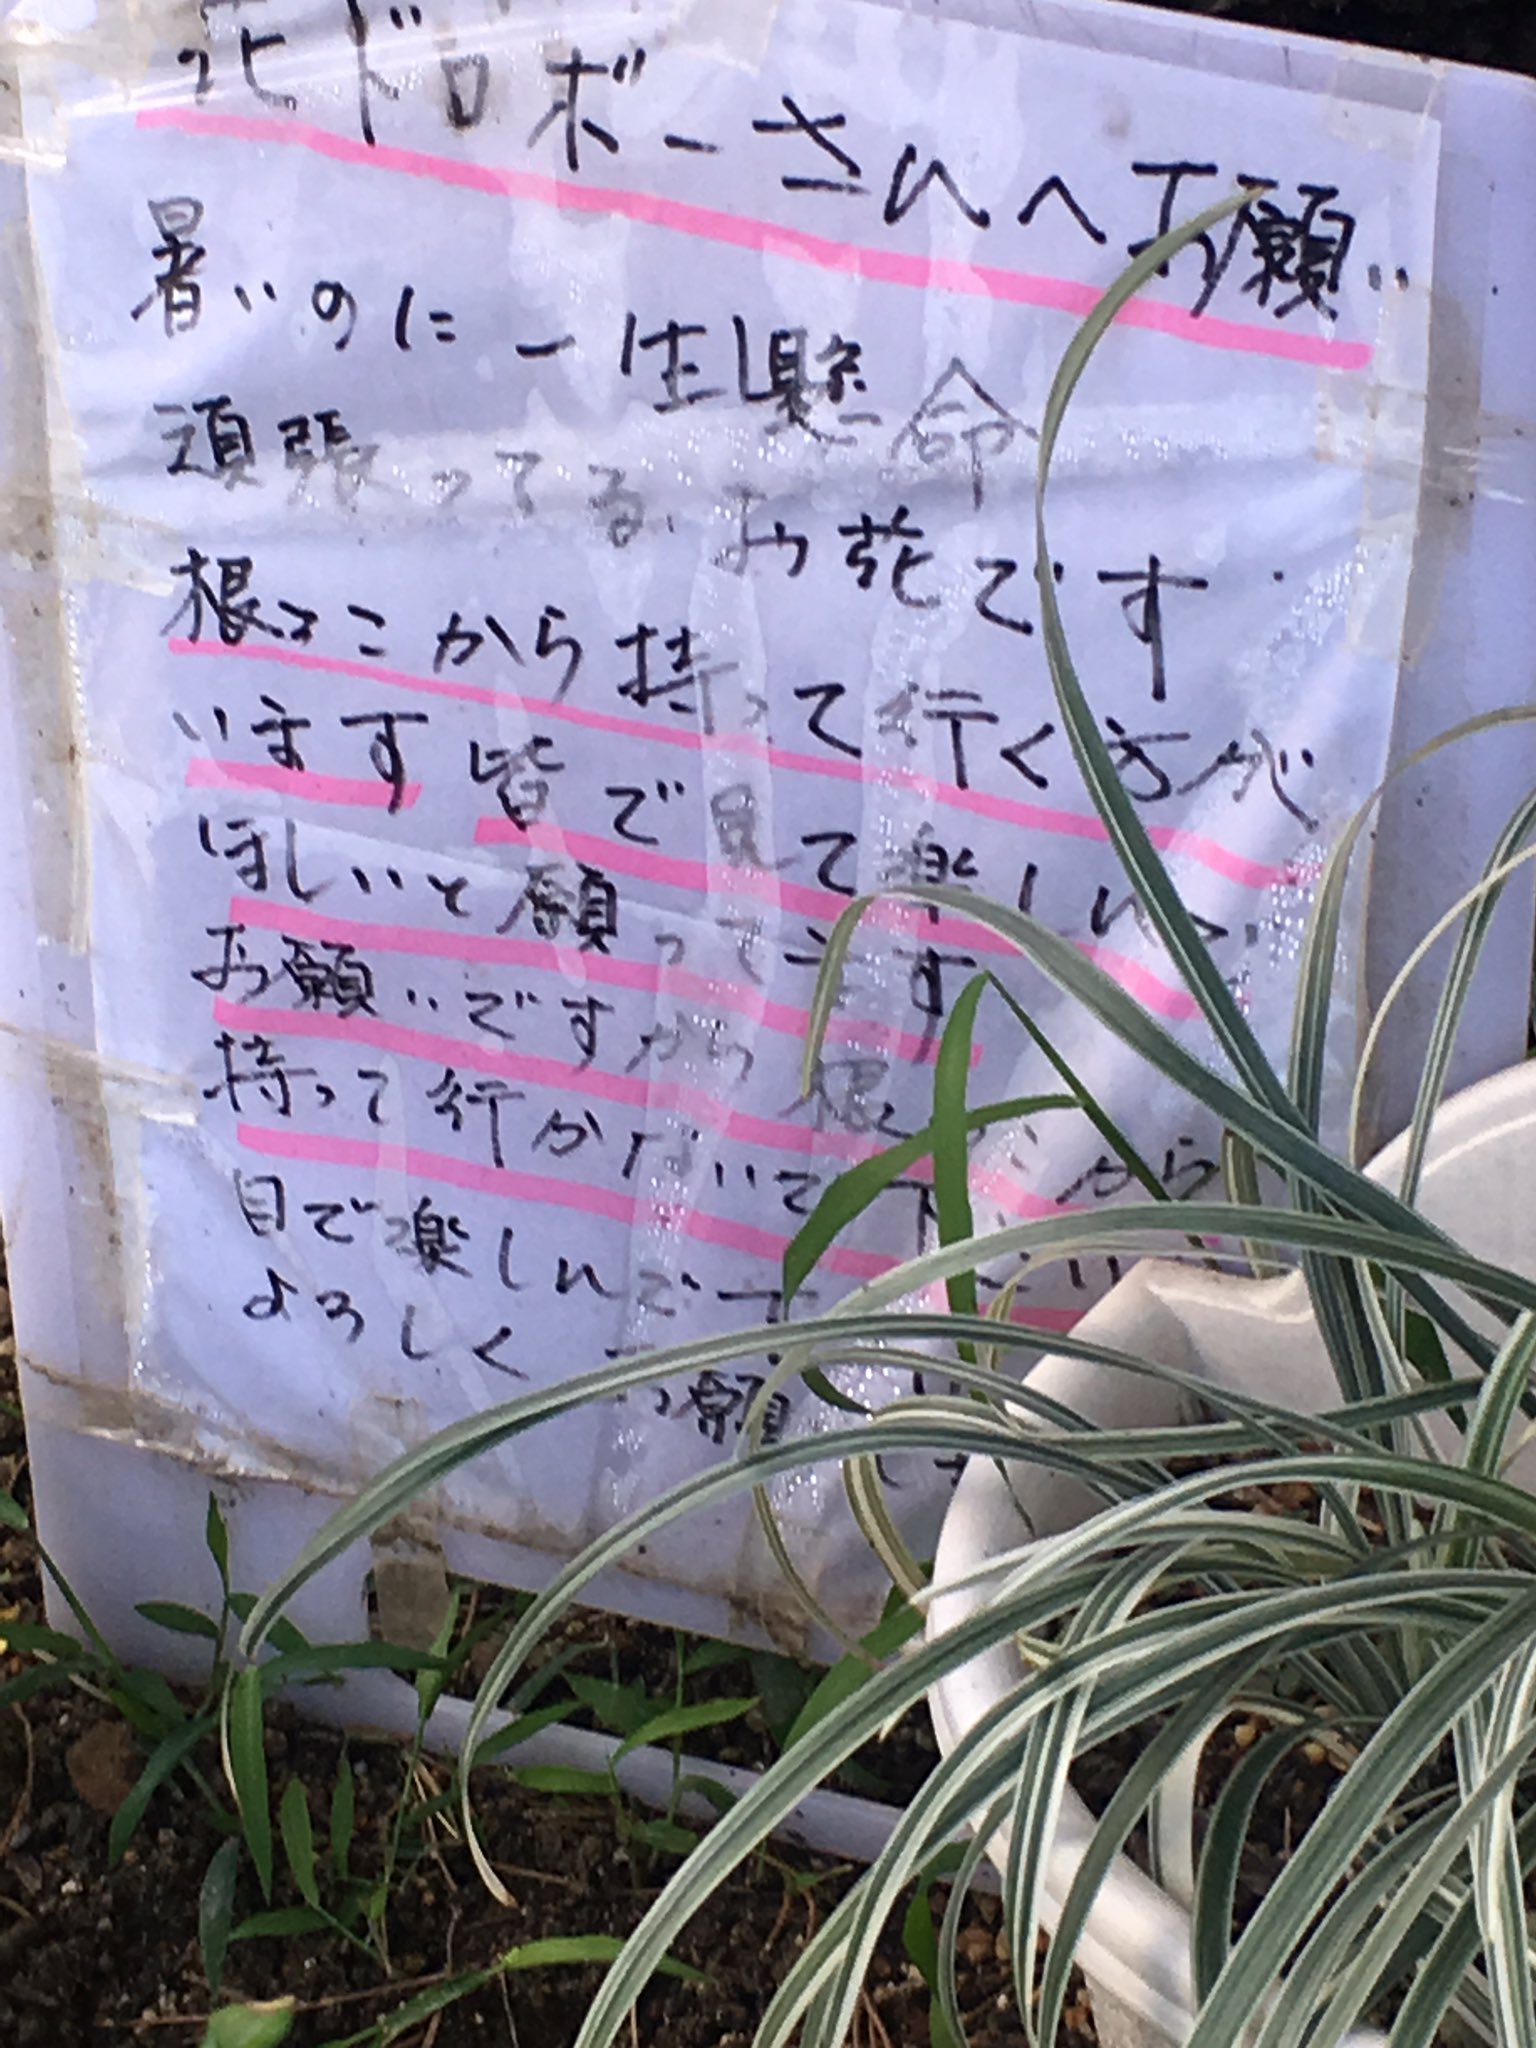 花ドロボーさんへお願い
暑いのに一生懸命
頑張ってるお花です
根っこから持って行く方が
います皆で見て楽しんで
ほしいと願ってます
お願いですから根っこから
持って行かないで下さい
目で楽しんで下
よろしくお願いしま